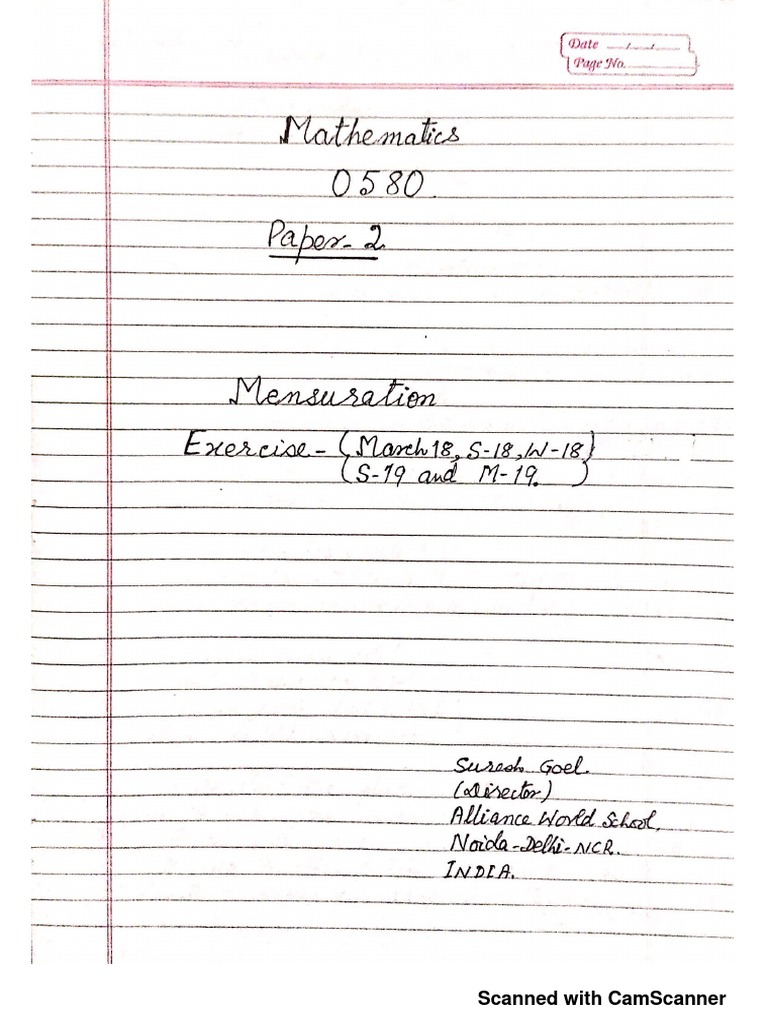 Date __/__/__
Page No.
Mathematics
0580.
Paper-2
Mensuration
Exercise-(March18, S-18, W-18)
(S-19 and M-19. )
Suresh Goel.
(Director)
Alliance World School,
Noida-Delhi-NCR.
INDIA.
Scanned with CamScanner